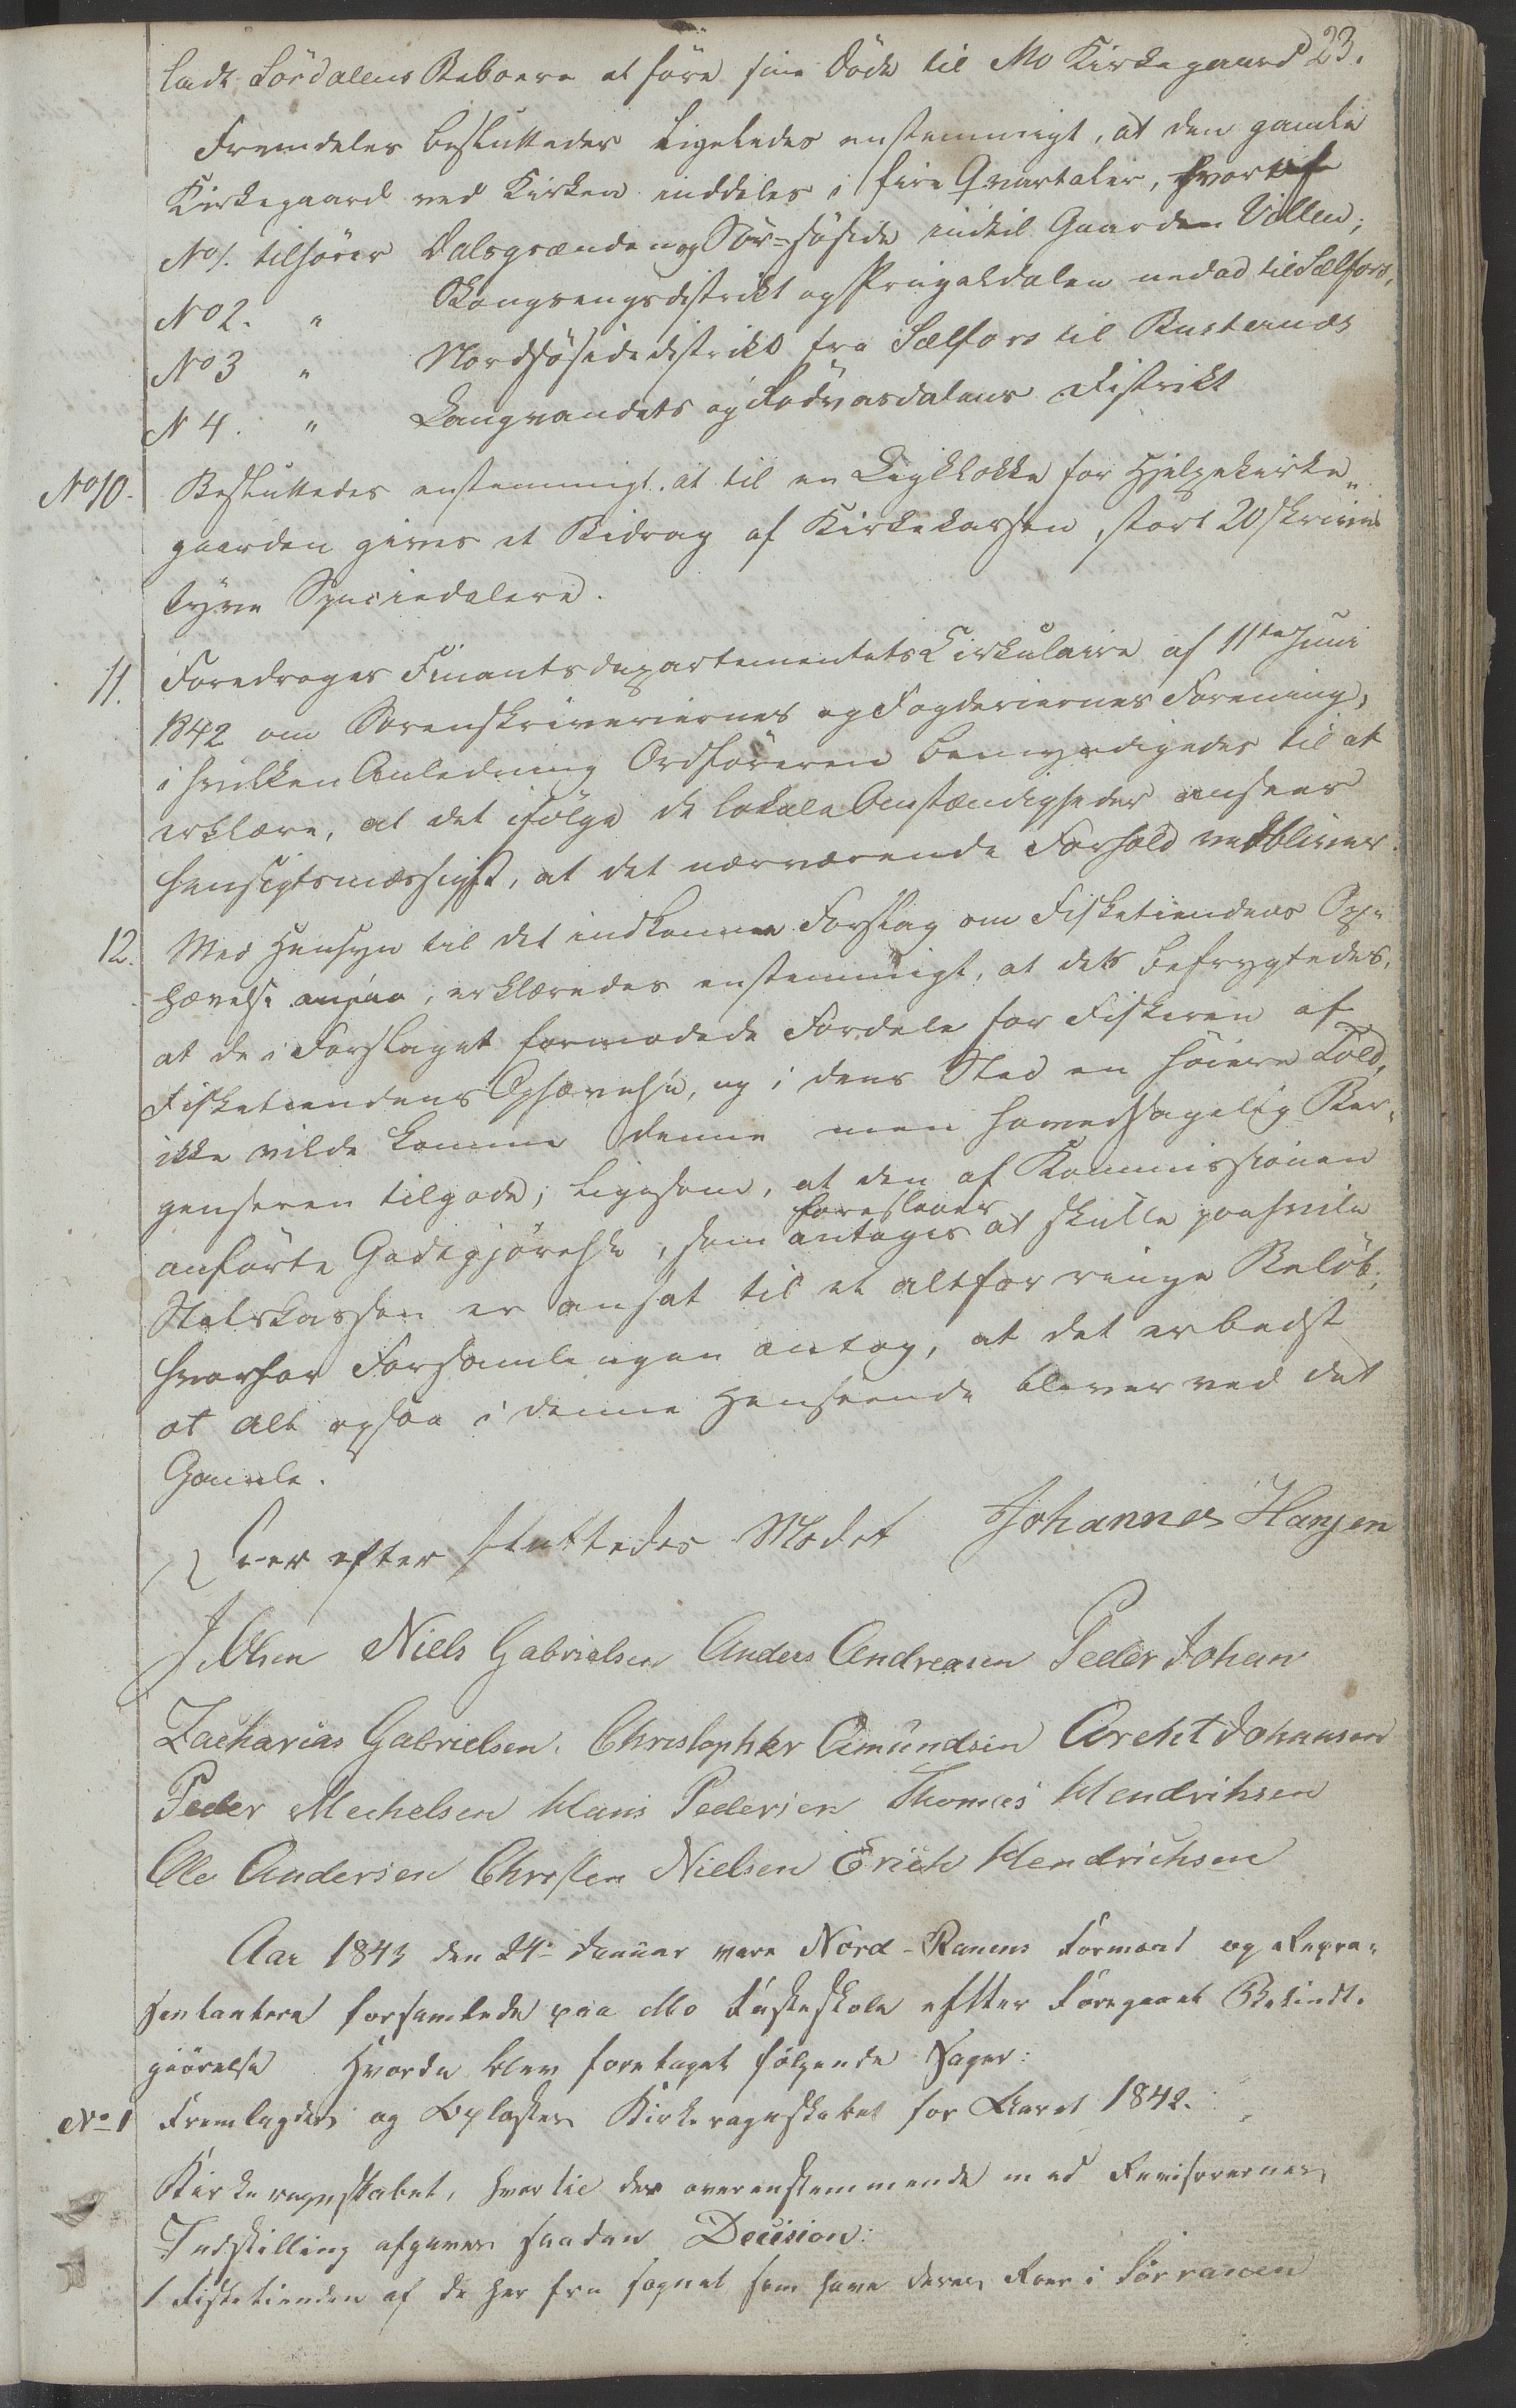 23.
lade Lördalens Beboere at före sine Döde til Mo Kirkegaard
Fremdeles besluttedes ligeledes enstemmigt, at den gamle
Kirkegaard ved Kirken inddeles i fire Qvartaler, hvortil
No 1. tilhører Dalsgrænden og Sör-söside indtil Gaarden Villen;
No 2. " Skongsengsdistrikt og Plugeldalen nedad til Selfors,
No 3 " Nordsösidedistrikt fra Selfors til Busternæs
N 4. " Langvandets og Rödvasdalens Distrikt
No 10. Besluttedes enstemmigt, at til en Ligklokke for Hjelpekirke„
gaarden gives et Bidrag af Kirkekassen, stort 20 skriver
tyve Speciedalere.
11. Foredroges Finantsdepartementets Cirkulaire af 11te Juni
1842 om Sorenskriveriernes og Fogderiernes Forening,
i hvilken Anledning Ordföreren bemyndigedes til at
erklære, at det ifölge de lokale Omstændigheder ansees
hensigtsmæssigst, at det nærværende Forhold vedbliver.
12. Med Hensyn til det indkomne Forslag om Fisketiendens Op„
hævelse anjaa, erklæredes enstemmigt, at det befrygtedes,
at de i Forslaget formodede Fordele for Fiskeren af
Fisketiendens Ophævelse, og i dens Sted en höiere Told,
ikke vilde komme denne men hovedsagelig Ber„
genseren tilgode; ligesom, at den af Kommissionen
foreslaaes
anförte Godtgjörelse, som antages at skulle paahvile
Statskassen er ansat til et altfor ringe Belöb;
hvorfor Forsamlingen antog, at det er bedst
at alt ogsaa i denne Henseende bliver ved det
Gamle.
Her efter sluttedes Mödet Johannes Hansen
J. Olsen Niels Gabrielsen Anders Andreasen Peder Johan
Zacharias Gabrielsen. Christopher Amundsen Arent Johansen
Peder Mechelsen Hans Pedersen Thomas Hendriksen
Ole Andersen Christen Nielsen Erich Hendrichsen
Aar 1843 den 24de Januar vare Nord-Ranens Formænd og Repræ„
sentantere forsamlede paa Mo Fasteskole eftter Foregaaet Bekiendt„
giörelse Hvorda blev foretaget fölgende Sager:
No 1 Fremlagdes og Oplæstes Kirkeregnskabet for Aaret 1842.
Kirkeregnskabet, hvortil der overenstemmende med Revisorernes
Indstilling afgaves saadan Decision:
1 Fisketienden af de her fra sognet som have deres Roer i Sörranen